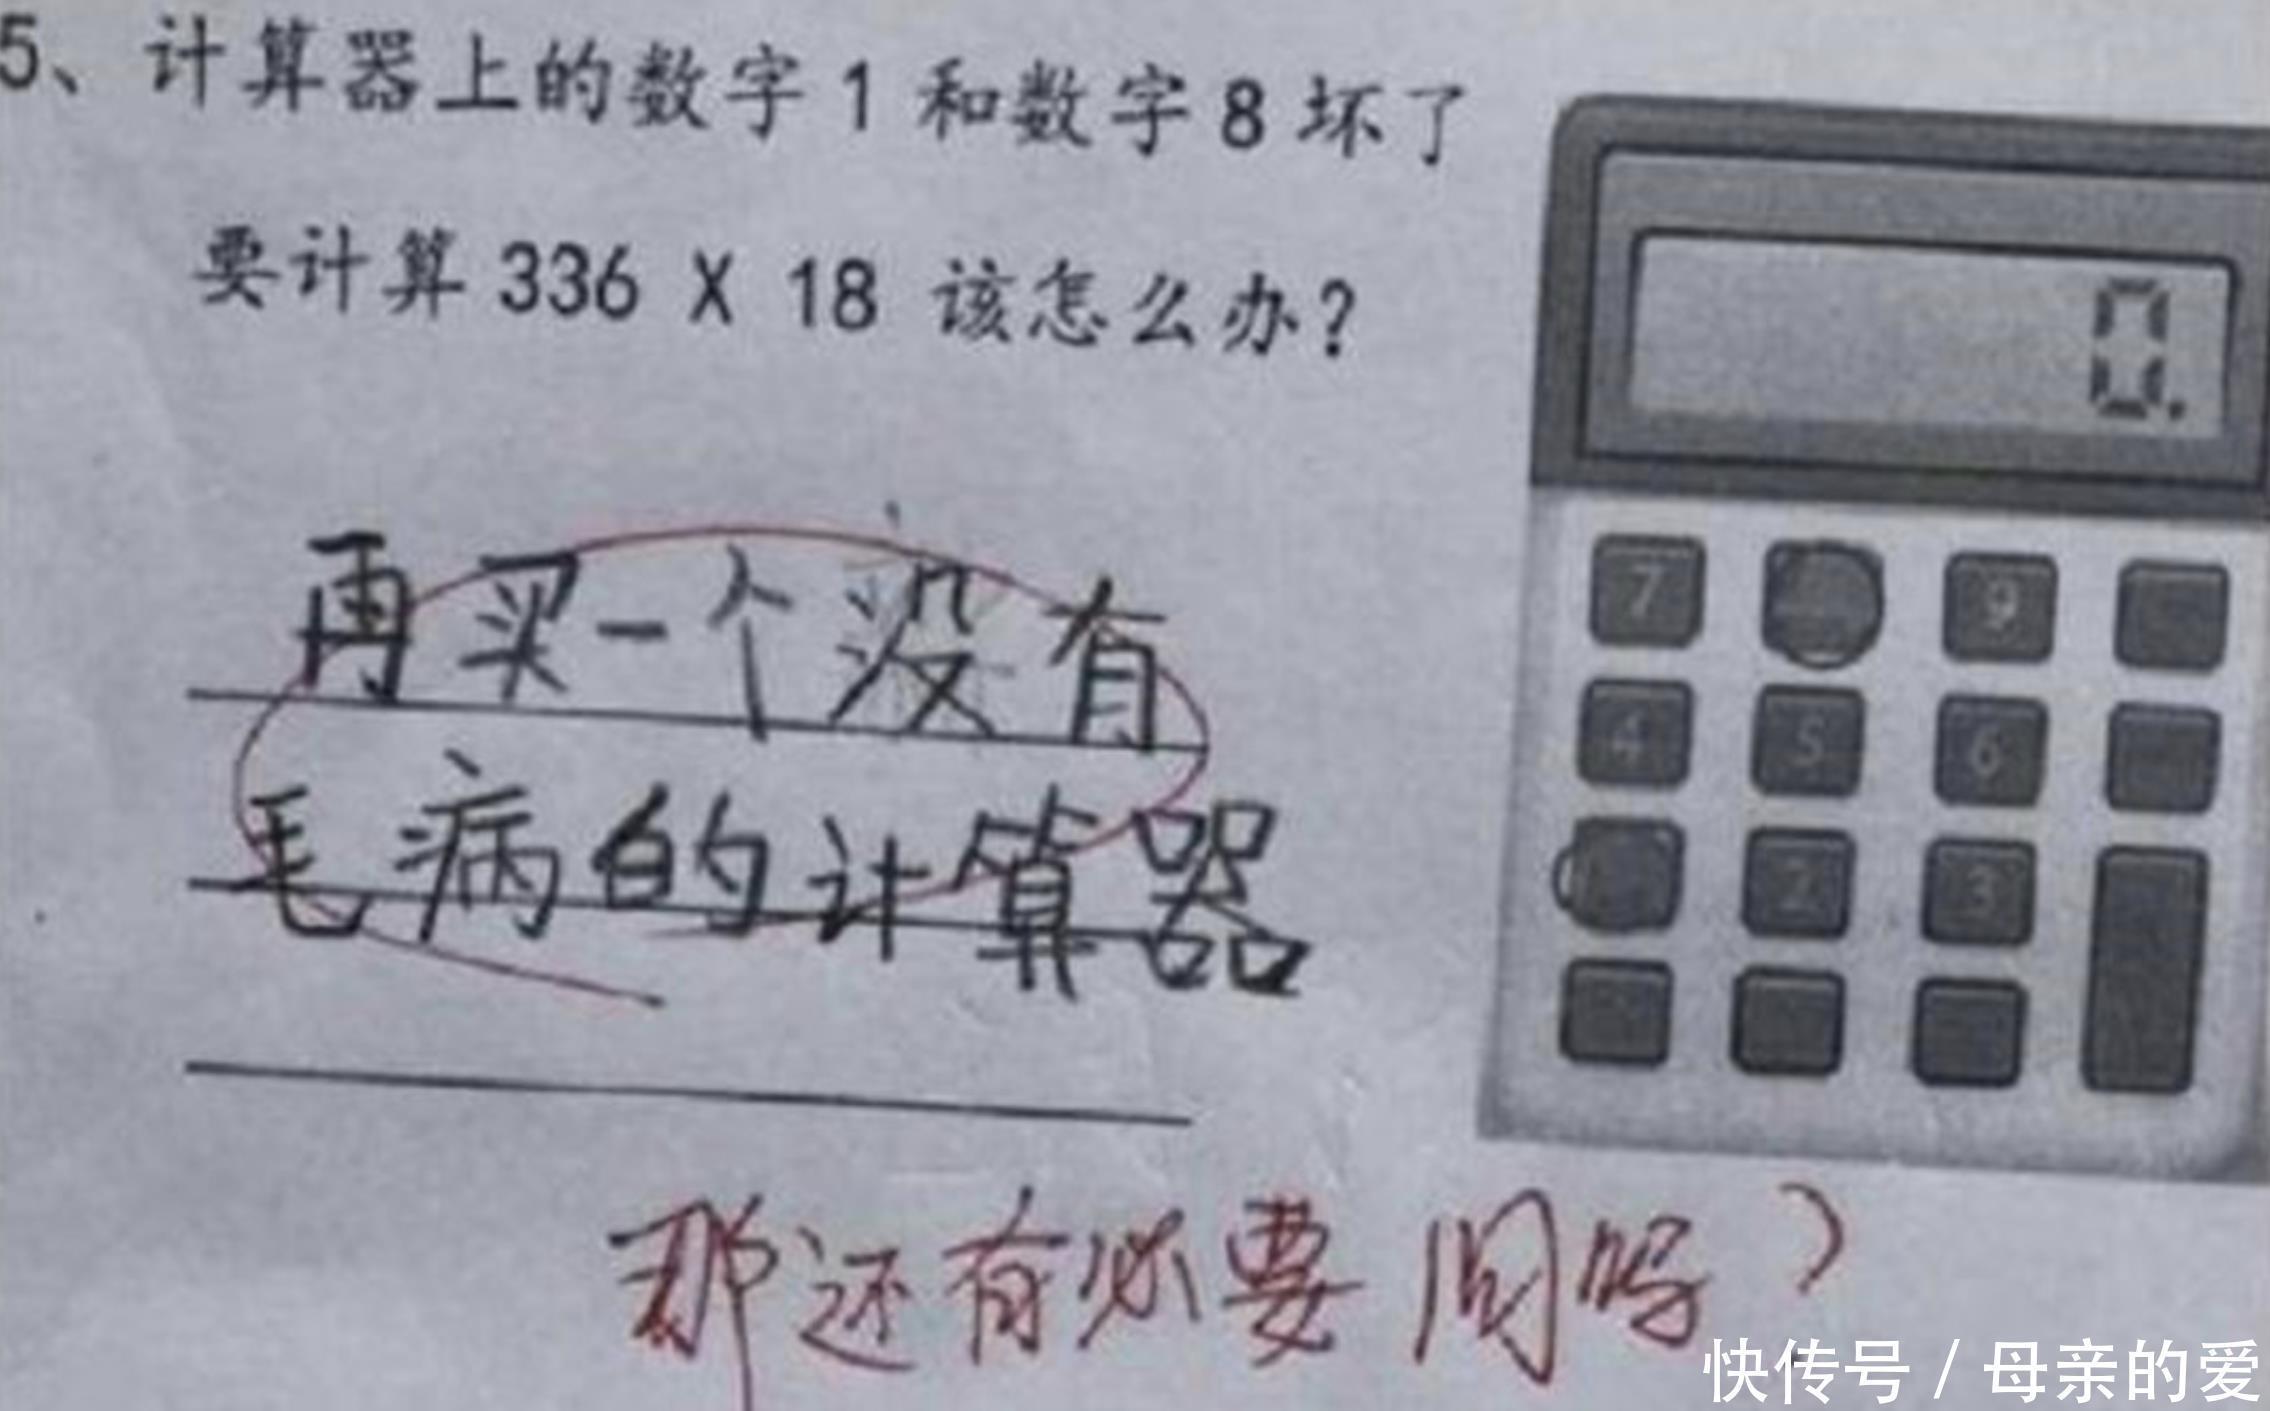 5、计算器上的数字1和数字8坏了
要计算336 X 18 该怎么办?
0.
7 9
4 5 6
2 3
再买一个没有
毛病的计算器
那还有必要问吗?
快传号/母亲的爱